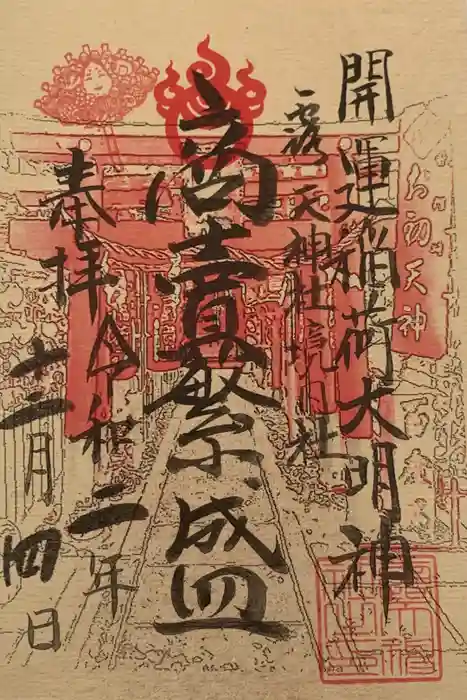 開運稲荷大明神
露天神社境内社
商売繁盛
奉拝
令和二年
十二月
四日
お初天神